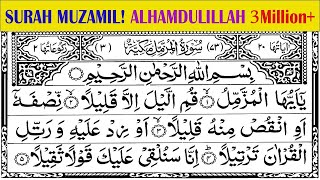 SURAH MUZAMIL! ALHAMDULILLAH 3Million+
اٰيَاتُهَا ٢٠ (٧٣) سُوْرَةُ الْمُزَّمِّلِ مَكِّيَّةٌ (٣) رُكُوْعَاتُهَا ٢
بِسْمِ اللّٰهِ الرَّحْمٰنِ الرَّحِيْمِ
يٰۤاَيُّهَا الْمُزَّمِّلُ ۙ﴿١﴾ قُمِ الَّيْلَ اِلَّا قَلِيْلًا ۙ﴿٢﴾ نِّصْفَهٗۤ
اَوِ انْقُصْ مِنْهُ قَلِيْلًا ۙ﴿٣﴾ اَوْ زِدْ عَلَيْهِ وَ رَتِّلِ
الْقُرْاٰنَ تَرْتِيْلًا ؕ﴿٤﴾ اِنَّا سَنُلْقِيْ عَلَيْكَ قَوْلًا ثَقِيْلًا ﴿٥﴾